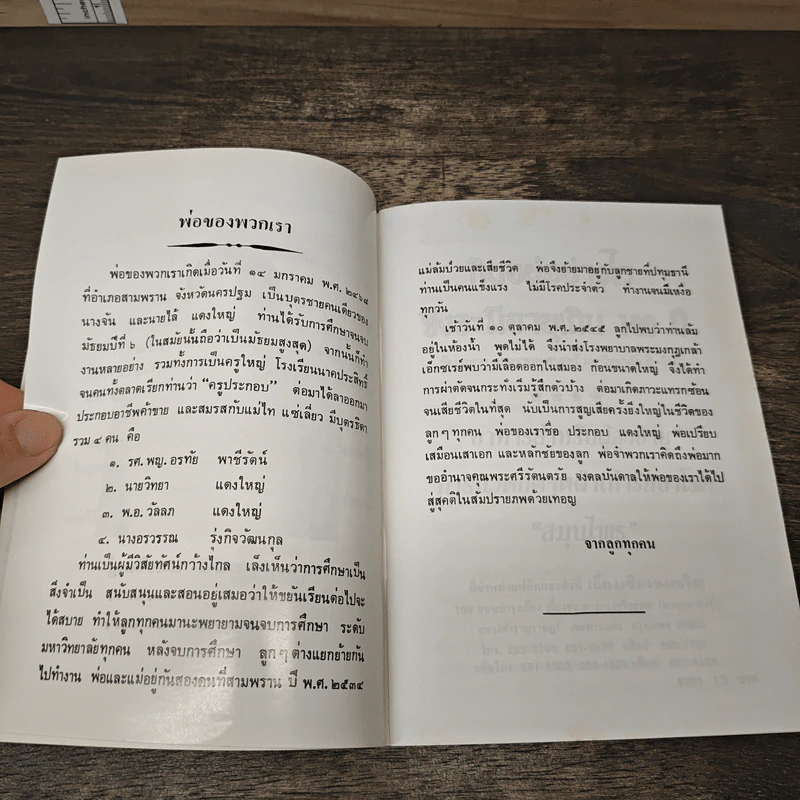 พ่อของพวกเรา
พ่อของพวกเราเกิดเมื่อวันที่ ๑๔ มกราคม พ.ศ. ๒๔๖๘
ที่อำเภอสามพราน จังหวัดนครปฐม เป็นบุตรชายคนเดียวของ
นางจัน และนายไล้ แดงใหญ่ ท่านได้รับการศึกษาจนจบ
มัธยมปีที่ ๖ (ในสมัยนั้นถือว่าเป็นมัธยมสูงสุด) จากนั้นก็ทำ
งานหลายอย่าง รวมทั้งการเป็นครูใหญ่ โรงเรียนนาคประสิทธิ์
จนคนทั้งตลาดเรียกท่านว่า “ครูประกอบ” ต่อมาได้ลาออกมา
ประกอบอาชีพค้าขาย และสมรสกับแม่ไท แซ่เลี่ยว มีบุตรธิดา
รวม ๔ คน คือ
๑. รศ.พญ.อรทัย พาชีรัตน์
๒. นายวิทยา แดงใหญ่
๓. พ.อ.วัลลภ แดงใหญ่
๔. นางอรวรรณ รุ่งกิจวัฒนกุล
ท่านเป็นผู้มีวิสัยทัศน์กว้างไกล เล็งเห็นว่าการศึกษาเป็น
สิ่งจำเป็น สนับสนุนและสอนอยู่เสมอว่าให้ขยันเรียนต่อไปจะ
ได้สบาย ทำให้ลูกทุกคนมานะพยายามจนจบการศึกษา ระดับ
มหาวิทยาลัยทุกคน หลังจบการศึกษา ลูกๆ ต่างแยกย้ายกัน
ไปทำงาน พ่อและแม่อยู่กันสองคนที่สามพราน ปี พ.ศ. ๒๕๓๔
แม่ล้มป่วยและเสียชีวิต พ่อจึงย้ายมาอยู่กับลูกชายที่ปทุมธานี
ท่านเป็นคนแข็งแรง ไม่มีโรคประจำตัว ทำงานจนมีเหงื่อ
ทุกวัน
เช้าวันที่ ๑๐ ตุลาคม พ.ศ. ๒๕๔๕ ลูกไปพบว่าท่านล้ม
อยู่ในห้องน้ำ พูดไม่ได้ จึงนำส่งโรงพยาบาลพระมงกุฎเกล้า
เอ็กซเรย์พบว่ามีเลือดออกในสมอง ก้อนขนาดใหญ่ จึงได้ทำ
การผ่าตัดจนกระทั่งเริ่มรู้สึกตัวบ้าง ต่อมาเกิดภาวะแทรกซ้อน
จนเสียชีวิตในที่สุด นับเป็นการสูญเสียครั้งยิ่งใหญ่ในชีวิตของ
ลูกๆ ทุกคน พ่อของเราชื่อ ประกอบ แดงใหญ่ พ่อเปรียบ
เสมือนเสาเอก และหลักชัยของลูก พ่อจ๋าพวกเราคิดถึงพ่อมาก
ขออำนาจคุณพระศรีรัตนตรัย จงดลบันดาลให้พ่อของเราได้ไป
สู่สุคติในสัมปรายภพด้วยเทอญ
จากลูกทุกคน